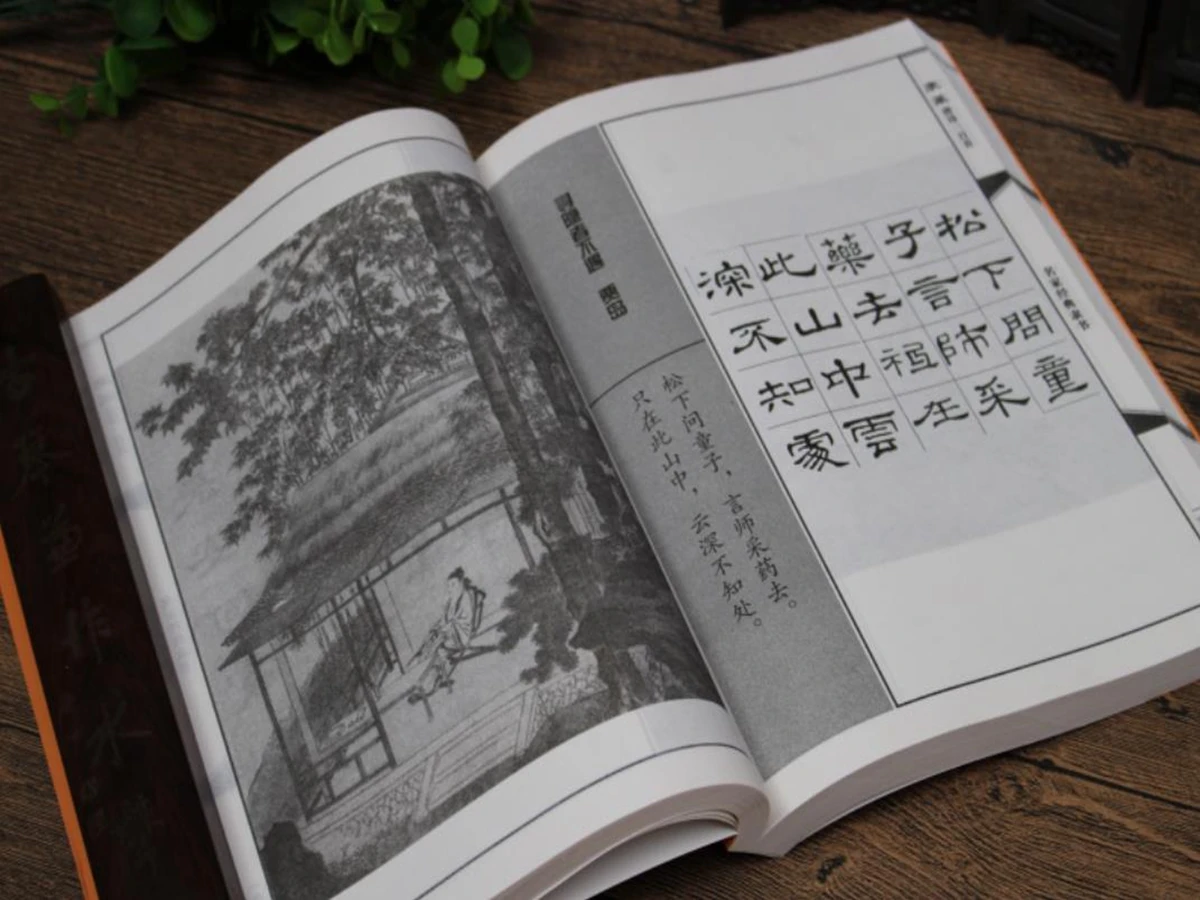 名家经典隶书
松下問童
子言師采
藥去祗在
此山中雲
深不知處
寻隐者不遇 贾岛
松下问童子，言师采药去。
只在此山中，云深不知处。